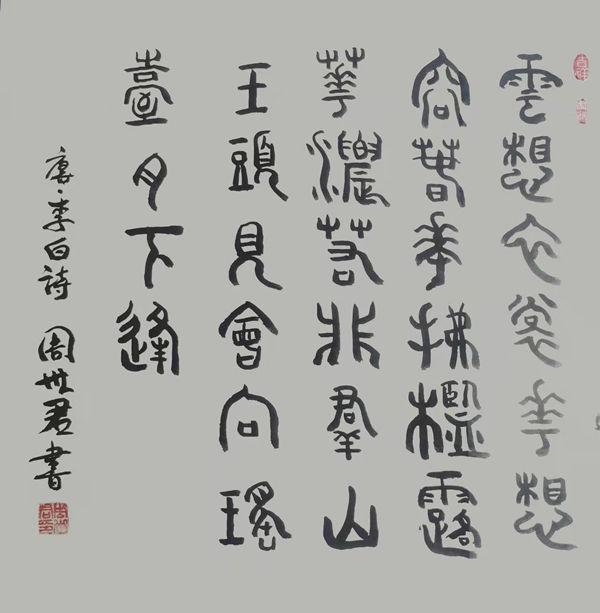 雲想衣裳花想
容春拂檻露
華濃若非羣山
玉頭見會向瑤
臺月下逢
唐·李白詩 周世君書